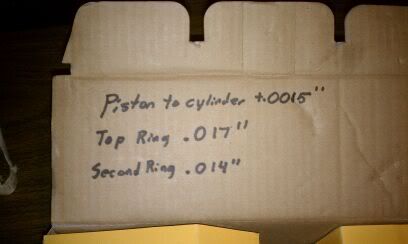 Piston to cylinder +.0015"
Top Ring .017"
Second Ring .014"